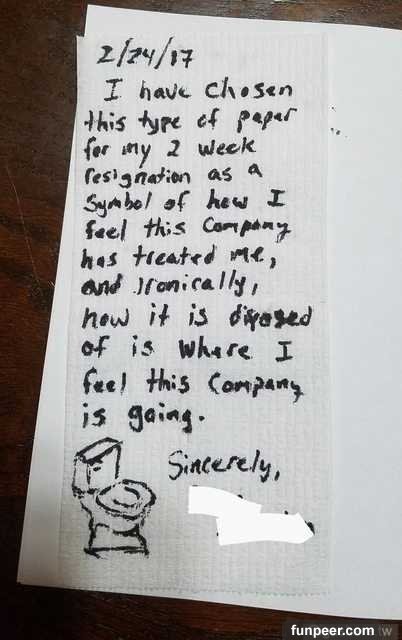 2/24/17
I have chosen
this type of paper
for my 2 week
resignation as a
symbol of how I
feel this company
has treated me,
and ironically,
how it is disposed
of is where I
feel this company
is going.
Sincerely,
funpeer.com